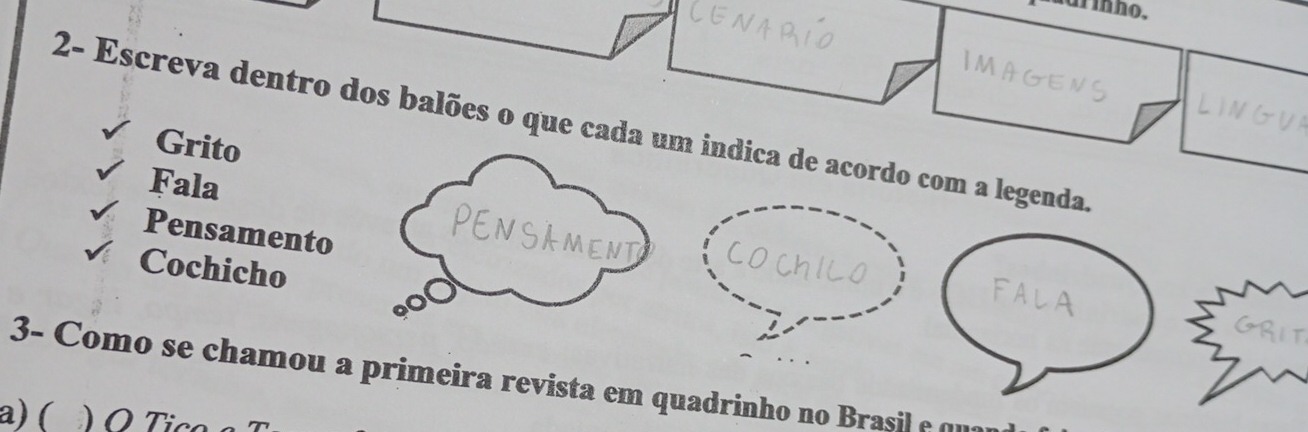 CENARIO
IMAGENS
2- Escreva dentro dos balões o que cada um indica de acordo com a legenda.
Grito
Fala
Pensamento
Cochicho
PENSAMENTO
COCHILO
FALA
GRIT
3- Como se chamou a primeira revista em quadrinho no Brasil e
a) ( ) O Tico